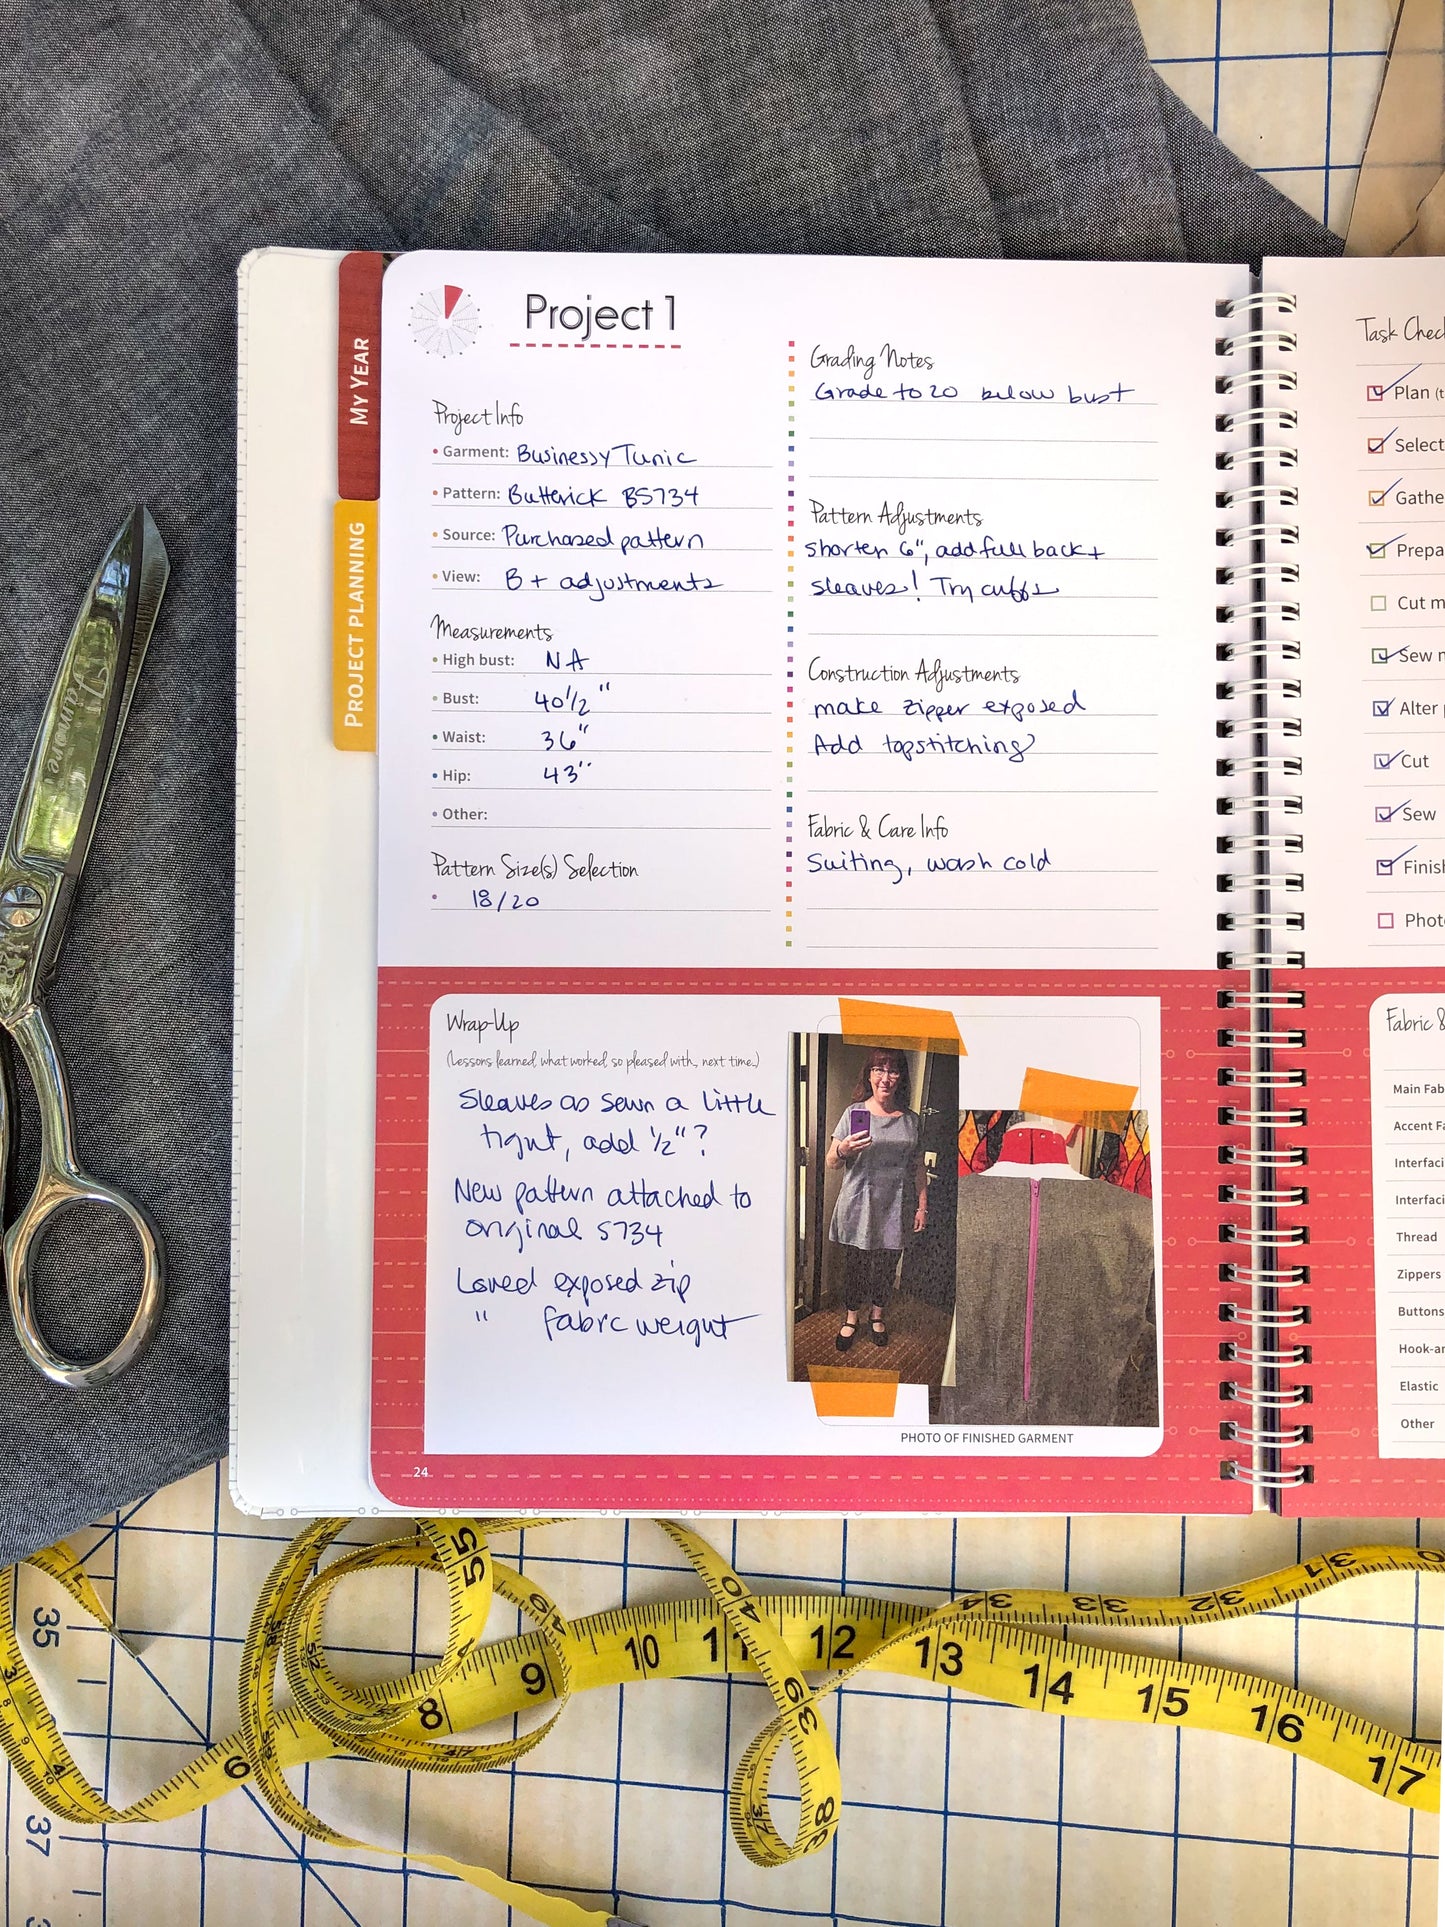 Project 1
MY YEAR
PROJECT PLANNING
Project Info
• Garment: Businessy Tunic
• Pattern: Butterick B5734
• Source: Purchased pattern
• View: B + adjustments
Measurements
• High bust: NA
• Bust: 40 1/2"
• Waist: 36"
• Hip: 43"
• Other:
Pattern Size(s) Selection
• 18/20
Grading Notes
Grade to 20 below bust
Pattern Adjustments
shorten 6", add full back +
sleaves! Try cuffs
Construction Adjustments
make zipper exposed
Add topstitching
Fabric & Care Info
Suiting, wash cold
Wrap-Up
(Lessons learned, what worked, so pleased with, next time..)
Sleaves as sewn a little
tight, add 1/2"?
New pattern attached to
original 5734
Loved exposed zip
" fabric weight
PHOTO OF FINISHED GARMENT
24
Task Chec
Plan (t
Select
Gathe
Prepa
Cut m
Sew m
Alter p
Cut
Sew
Finish
Phot
Fabric &
Main Fab
Accent Fa
Interfaci
Interfaci
Thread
Zippers
Buttons
Hook-an
Elastic
Other
55
40
39
38
6
8
9
10
11
12
13
14
15
16
17
34
33
32
31
35
37